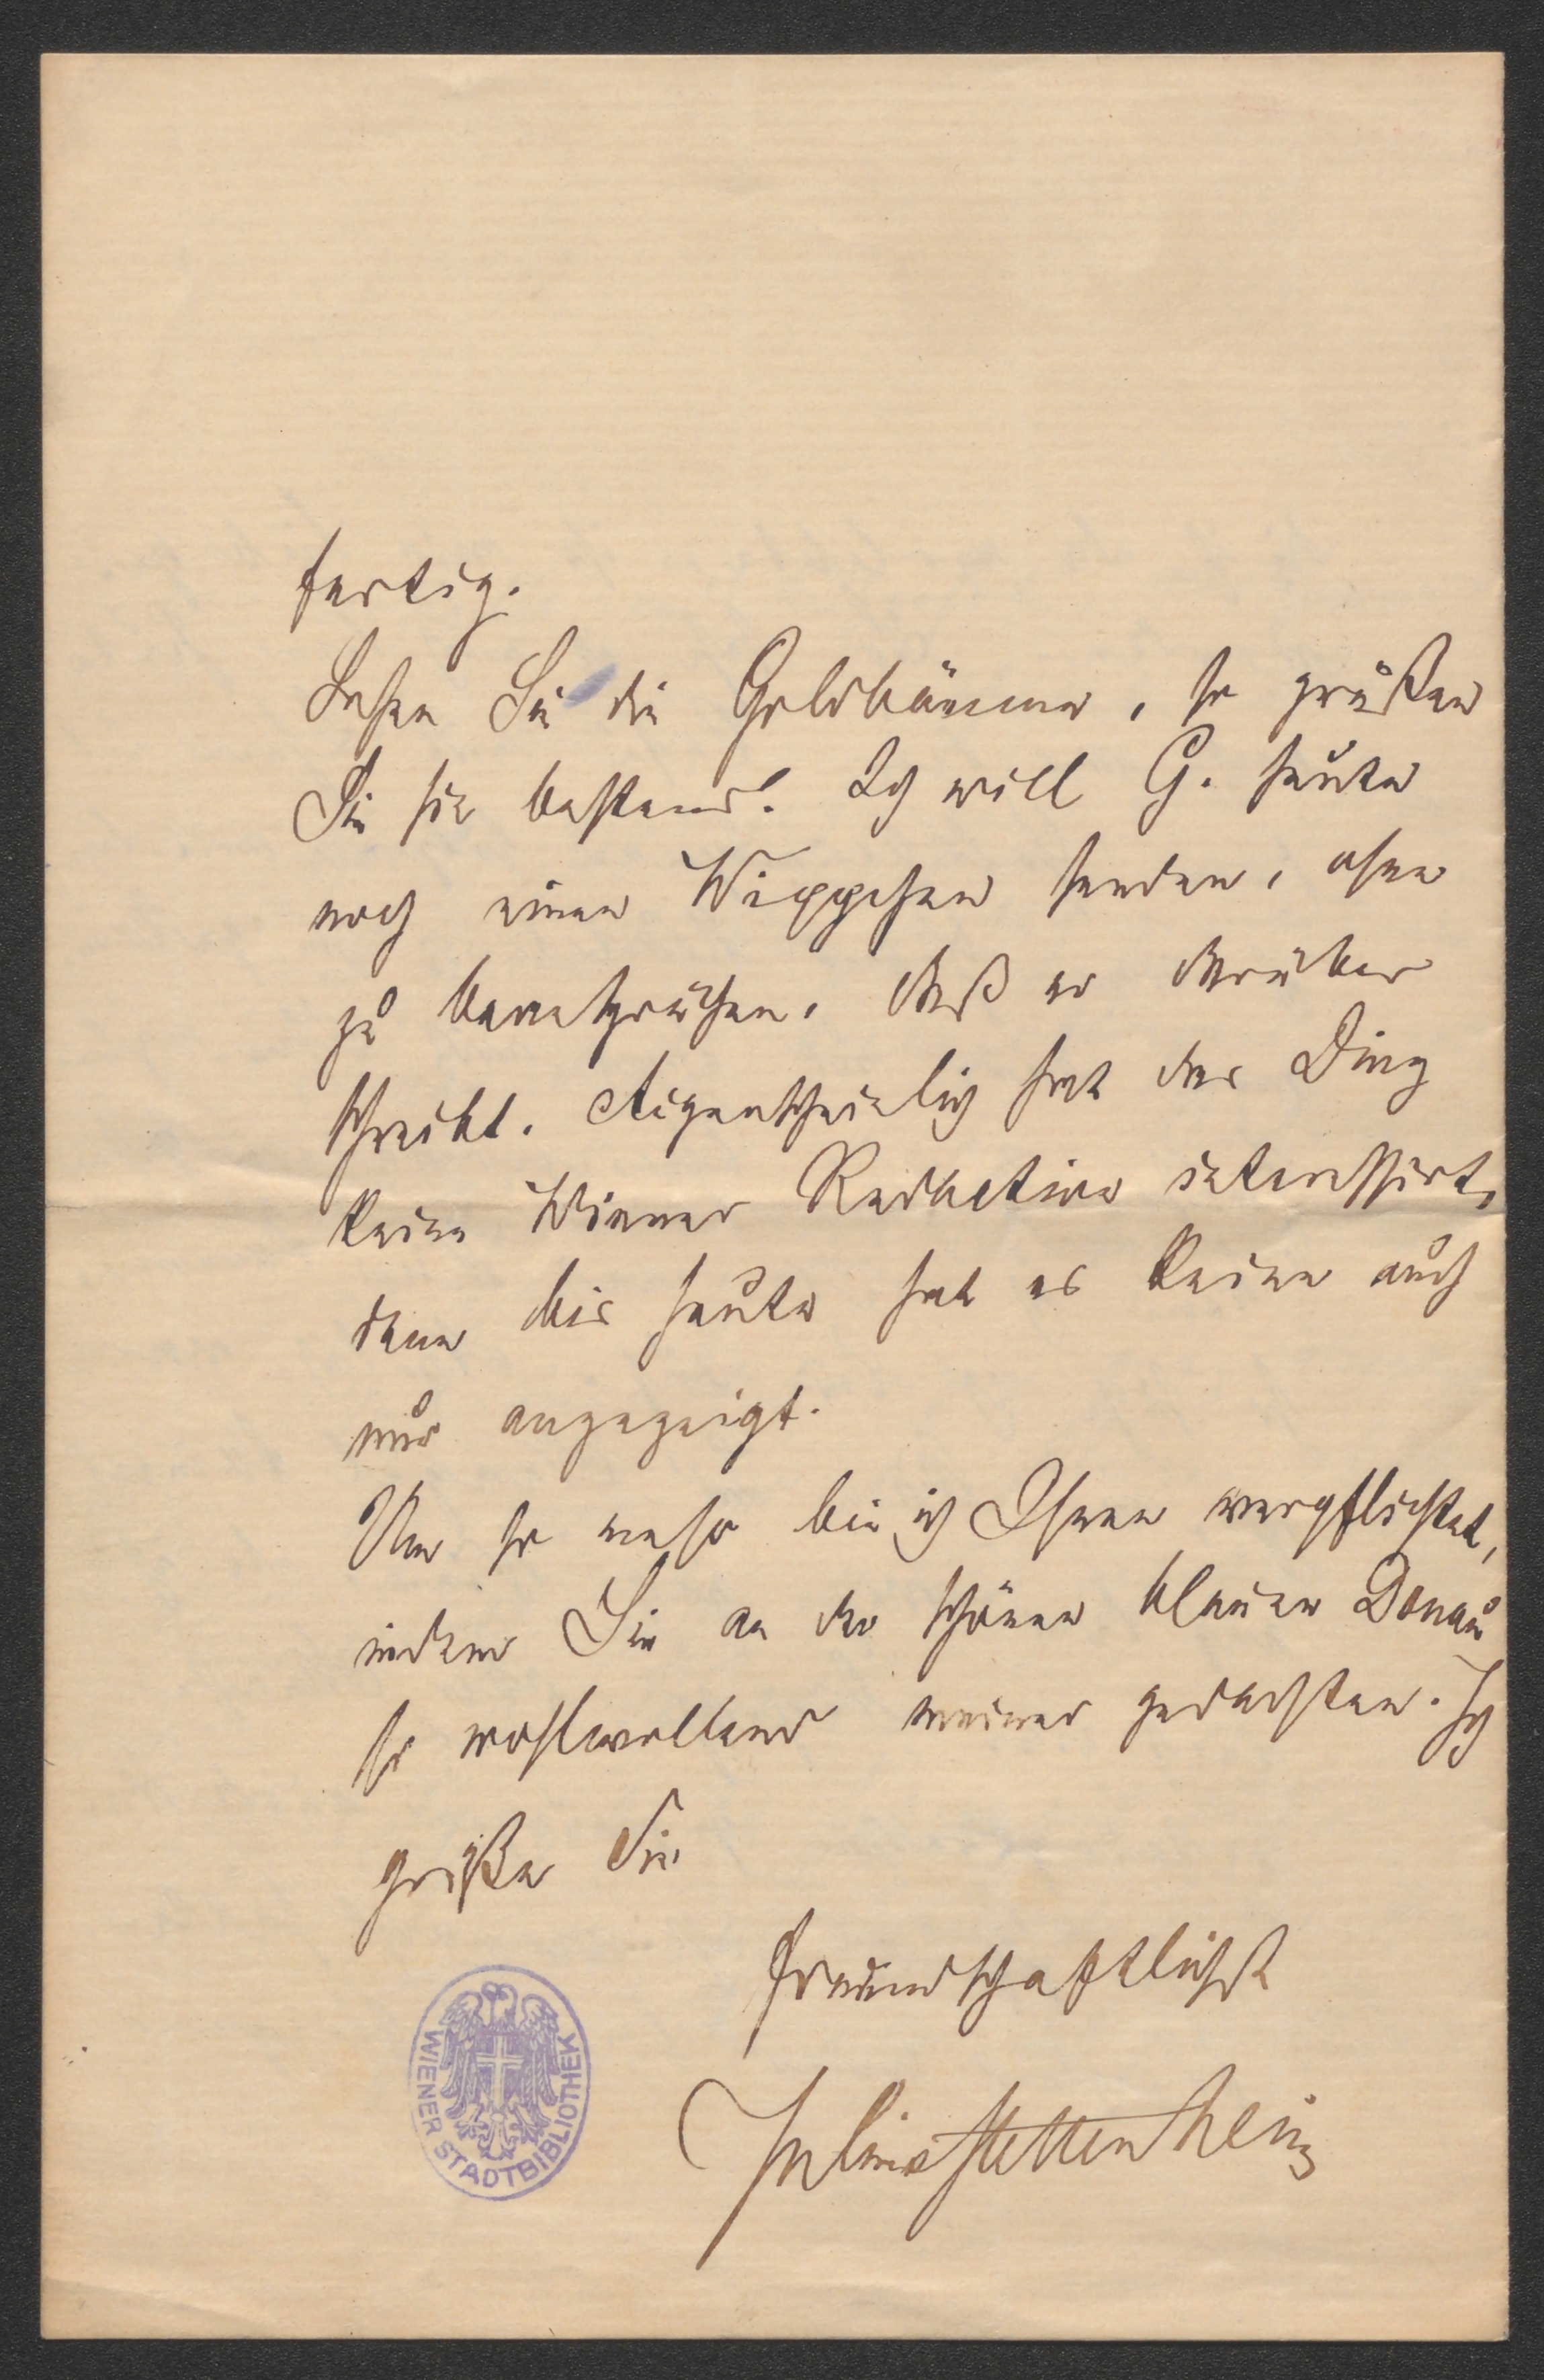 fertig.
Sehen Sie die Goldbäume, so grüßen
Sie sie bestens. Ich will G. heute
noch einen Wippchen senden, ohne
zu beanspruchen, daß er darüber
schreibt. Augenscheinlich hat das Ding
keine Wiener Redaktion interessirt,
denn bis heute hat es keine auch
nur angezeigt.
Um so mehr bin ich Ihnen verpflichtet,
indem Sie an der schönen blauen Donau
so wohlwollend meiner gedachten. Ich
grüße Sie
freundschaftlichst
Julius Stettenheim
WIENER STADTBIBLIOTHEK